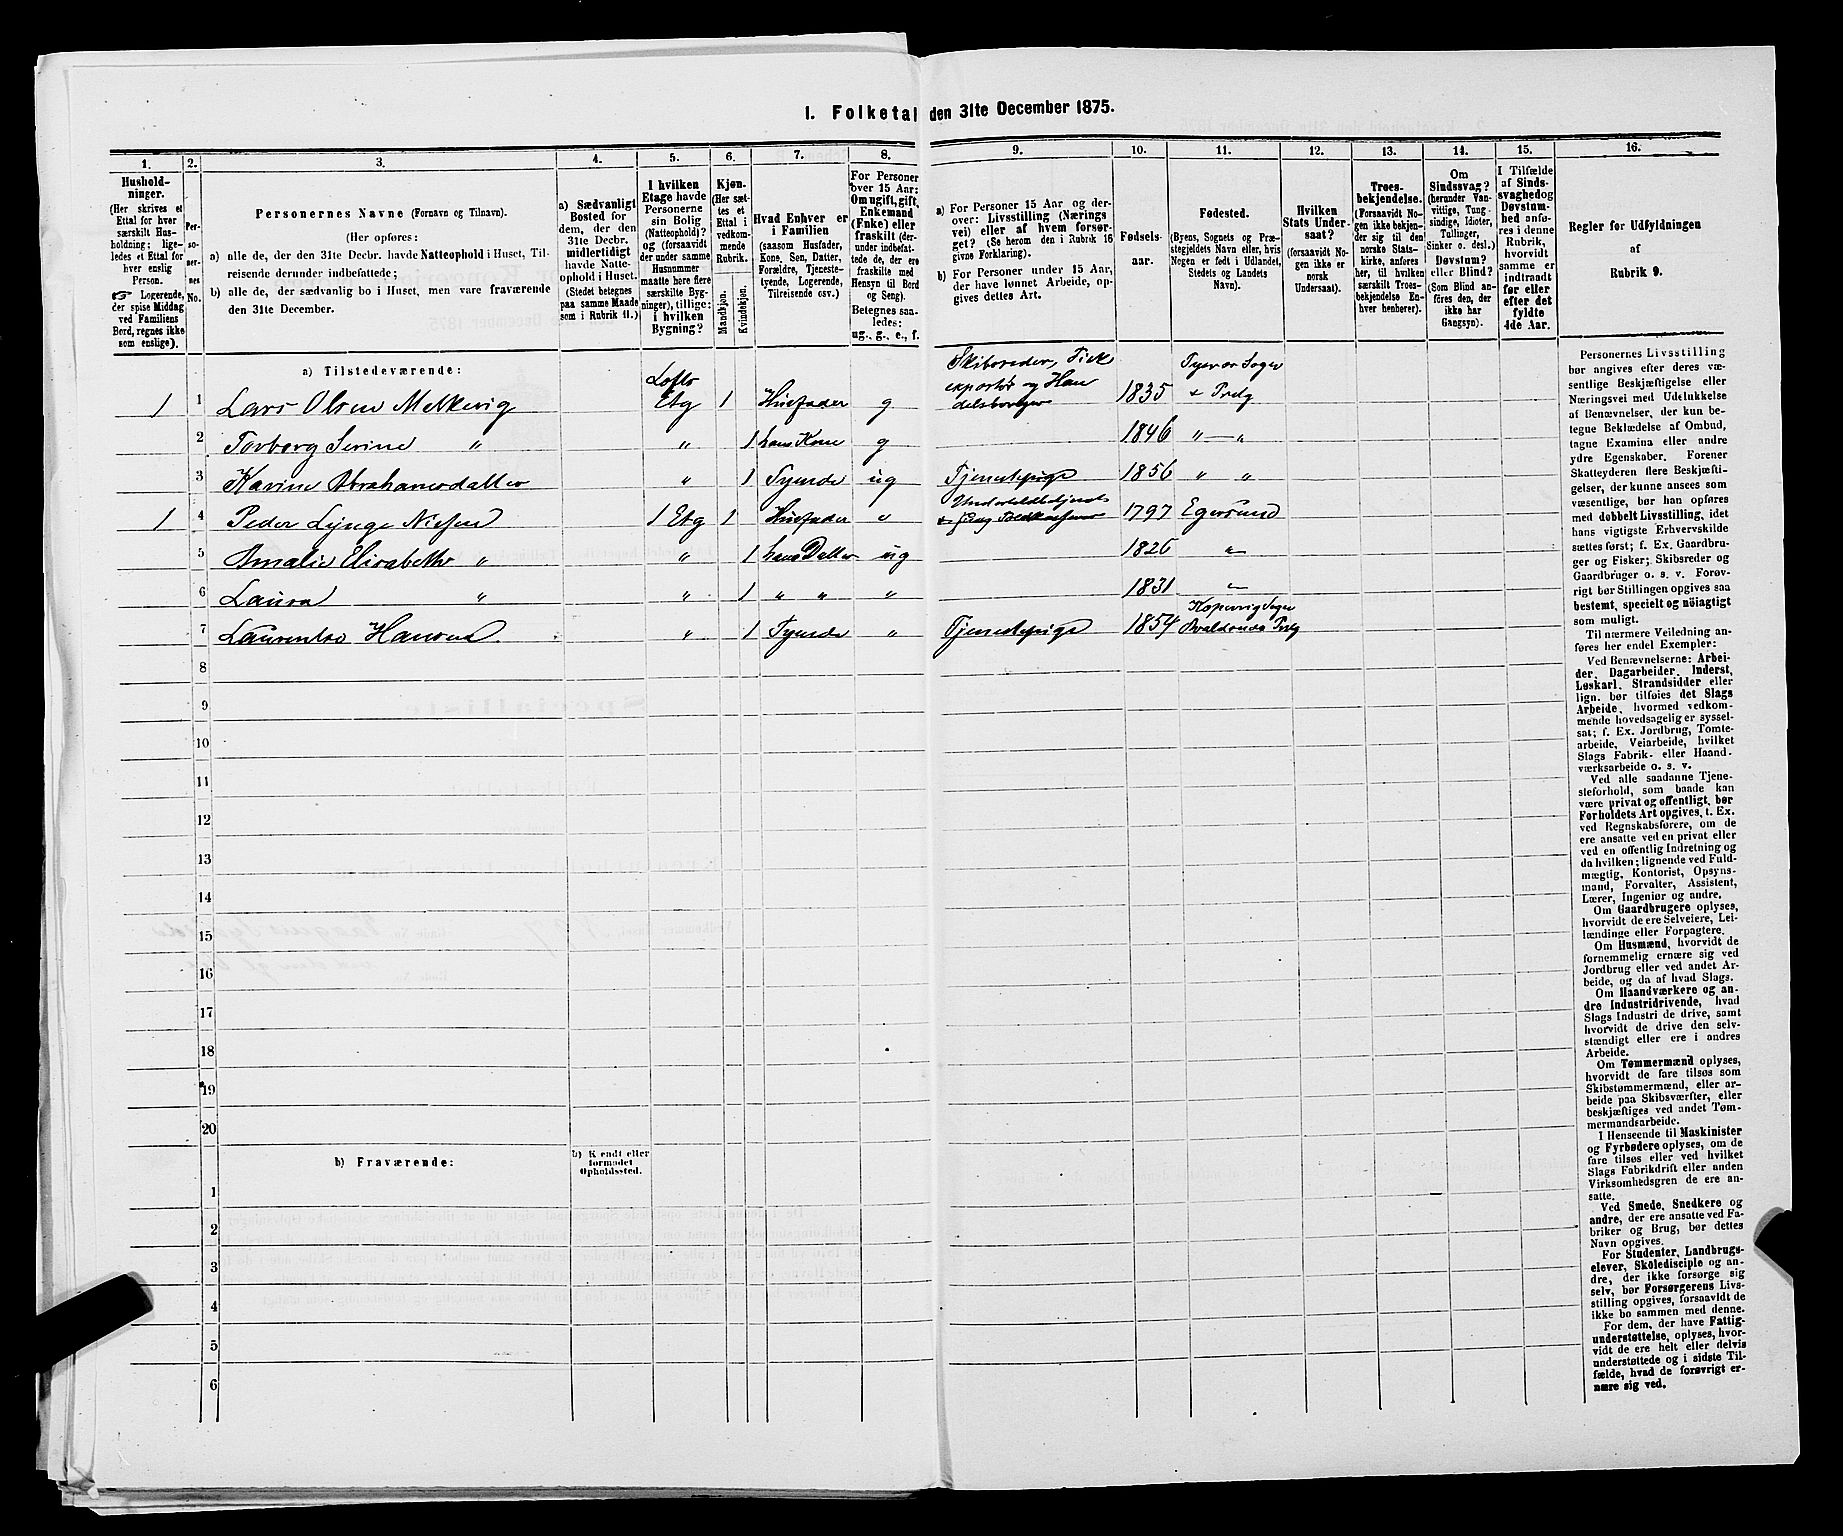 1. Folketal den 31te December 1875.
1. 2. 3. 4. 5. 6. 7. 8. 9. 10. 11. 12. 13. 14. 15. 16.
Hushold-
ninger.
(Her skrives et
Ettal for hver
særskilt Hus-
holdning; lige-
ledes et Ettal for
hver enslig
Person.
☞ Logerende,
der spise Middag
ved Familiens
Bord, regnes ikke
som enslige).
Per-
so-
ner-
nes
No.
Personernes Navne (Fornavn og Tilnavn).
(Her opføres:
a) alle de, der den 31te Decbr. havde Natteophold i Huset, Til-
reisende derunder indbefattede;
b) alle de, der sædvanlig bo i Huset, men vare fraværende
den 31te December.
a) Sædvanligt
Bosted for
dem, der den
31te Decbr.
midlertidigt
havde Natte-
ophold i Huset.
(Stedet betegnes
paa samme Maade
som i Rubrik 11.)
I hvilken
Etage havde
Personerne
sin Bolig
(Natteophold)?
og (forsaavidt
der under samme
Husnummer
maatte høre flere
særskilte Byg-
ninger), tillige:
i hvilken
Bygning?
Kjøn.
(Her sæt-
tes et
Ettal i
vedkom-
mende
Rubrik.
Mandkjøn.
Kvindekjøn.
Hvad Enhver er
i Familien
(saasom Husfader,
Kone, Søn, Datter,
Forældre, Tjeneste-
tyende, Logerende,
Tilreisende osv.)
For Personer
over 15 Aar:
Om ugift, gift,
Enkemand
(Enke) eller
fraskilt (der-
under indbefat-
tede de, der ere
fraskilte med
Hensyn til Bord
og Seng).
Betegnes saa-
ledes:
ug., g., e., f.
a) For Personer 15 Aar og der-
over: Livsstilling (Nærings
vei) eller af hvem forsør-
get? (Se herom den i Rubrik 16
givne Forklaring).
b) For Personer under 15 Aar,
der have lønnet Arbeide, op-
gives dettes Art.
Fødsels-
aar.
Fødested.
(Byens, Sognets og Præ-
stegjeldets Navn eller, hvis
Nogen er født i Udlandet,
Stedets og Landets
Navn).
Hvilken
Stats Under-
saat?
(forsaavidt No-
gen ikke er
norsk
Undersaat).
Troes-
bekjendelse.
(Forsaavidt No-
gen ikke bekjen-
der sig til den
norske Stats-
kirke, anføres
her, til hvilken
særskilt Troes-
bekjendelse En-
hver henhører).
Om
Sindssvag?
(herunder Van-
vittige, Tung-
sindige, Idioter,
Tullinger,
Sinker o. desl.)
Døvstum?
eller Blind?
(Som Blind an-
føres den, der
ikke har
Gangsyn).
I Tilfælde
af Sinds-
svaghed og
Døvstum-
hed anfø-
res i denne
Rubrik,
hvorvidt
samme er
indtraadt
før eller
efter det
fyldte
4de Aar.
Regler for Udfyldningen
af
Rubrik 9.
a) Tilstedeværende:
1 1 Lars Olsen Melkevig Lofts Etg 1 Husfader g Skibsreder, Fisk exportør og Han delsborger 1835 Tysvær Sogn & Prdg
2 Torborg Serine " " 1 hans Kone g 1846 " — "
3 Karine Abrahamsdatter " 1 Tyende ug Tjenestepige 1856 " "
1 4 Peder Lynge Nielsen 1 Etg 1 Husfader " 1797 Egersund
5 Amalie Elisabeth " " 1 hans Datter ug 1826 "
6 Laura " " 1 " " " 1831 "
7 Laurentse Hansen " 1 Tyende " Tjenestepige 1854 Kopervig Sogn Avaldsnes Prdg
8
9
10
11
12
13
14
15
16
17
18
19
20
b) Fraværende:
b) Kjendt eller
formodet
Opholdssted.
1
2
3
4
5
6
Personernes Livsstilling
bør angives efter deres væ-
sentlige Beskjæftigelse eller
Næringsvei med Udelukkelse
af Benævnelser, der kun be-
tegne Beklædelse af Ombud,
tagne Examina eller andre
ydre Egenskaber. Forener
Skatteyderen flere Beskjæfti-
gelser, der kunne ansees som
væsentlige, bør han opføres
med dobbelt Livsstilling, idet
hans vigtigste Erhvervskilde
sættes først; f. Ex. Gaardbru-
ger og Fisker; Skibsreder og
Gaardbruger o. s. v. Forøv-
rigt bør Stillingen opgives saa
bestemt, specielt og nöiagtigt
som muligt.
Til nærmere Veiledning an-
føres her endel Exempler:
Ved Benævnelserne: Arbei-
der, Dagarbeider, Inderst,
Løskarl, Strandsidder eller
lign. bør tilføies det Slags
Arbeide, hvormed vedkom-
mende hovedsagelig er syssel-
sat; f. Ex. Jordbrug, Tomte-
arbeide, Veiarbeide, hvilket
Slags Fabrik- eller Haand-
værksarbeide o. s. v.
Ved alle saadanne Tjene-
steforhold, som baade kan
være privat og offentligt, bør
Forholdets Art opgives, t. Ex.
ved Regnskabsførere, om de
ere ansatte ved en privat eller
ved en offentlig Indretning og
da hvilken; lignende ved Fuld-
mægtig, Kontorist, Opsyns-
mand, Forvalter, Assistent,
Lærer, Ingeniør og andre.
Om Gaardbrugere oplyses,
hvorvidt de ere Selveiere, Lei-
lændinge eller Forpagtere.
Om Husmænd, hvorvidt de
fornemmelig ernære sig ved
Jordbrug eller ved andet Ar-
beide, og da af hvad Slags.
Om Haandværkere og an-
dre Industridrivende, hvad
Slags Industri de drive, samt
hvorvidt de drive den selv-
stændigt eller ere i andres
Arbeide.
Om Tømmermænd oplyses,
hvorvidt de fare tilsøs som
Skibstømmermænd, eller ar-
beide paa Skibsværfter, eller
beskjæftiges ved andet Tøm-
mermandsarbeide.
I Henseende til Maskinister
og Fyrbødere oplyses, om de
fare tilsøs eller ved hvilket
Slags Fabrikdrift eller anden
Virksomhedsgren de ere an-
satte.
Ved Smede, Snedkere og
andre, der ere ansatte ved Fa-
briker og Brug, bør dettes
Navn opgives.
For Studenter, Landbrugs-
elever, Skoledisciple og an-
dre, der ikke forsørge sig
selv, bør Forsørgerens Livs-
stilling opgives, forsaavidt de
ikke bo sammen med denne.
For dem, der have Fattig-
understøttelse, oplyses, hvor-
vidt de ere helt eller delvis
understøttede og i sidste Til-
fælde, hvad de forøvrigt er-
nære sig ved.